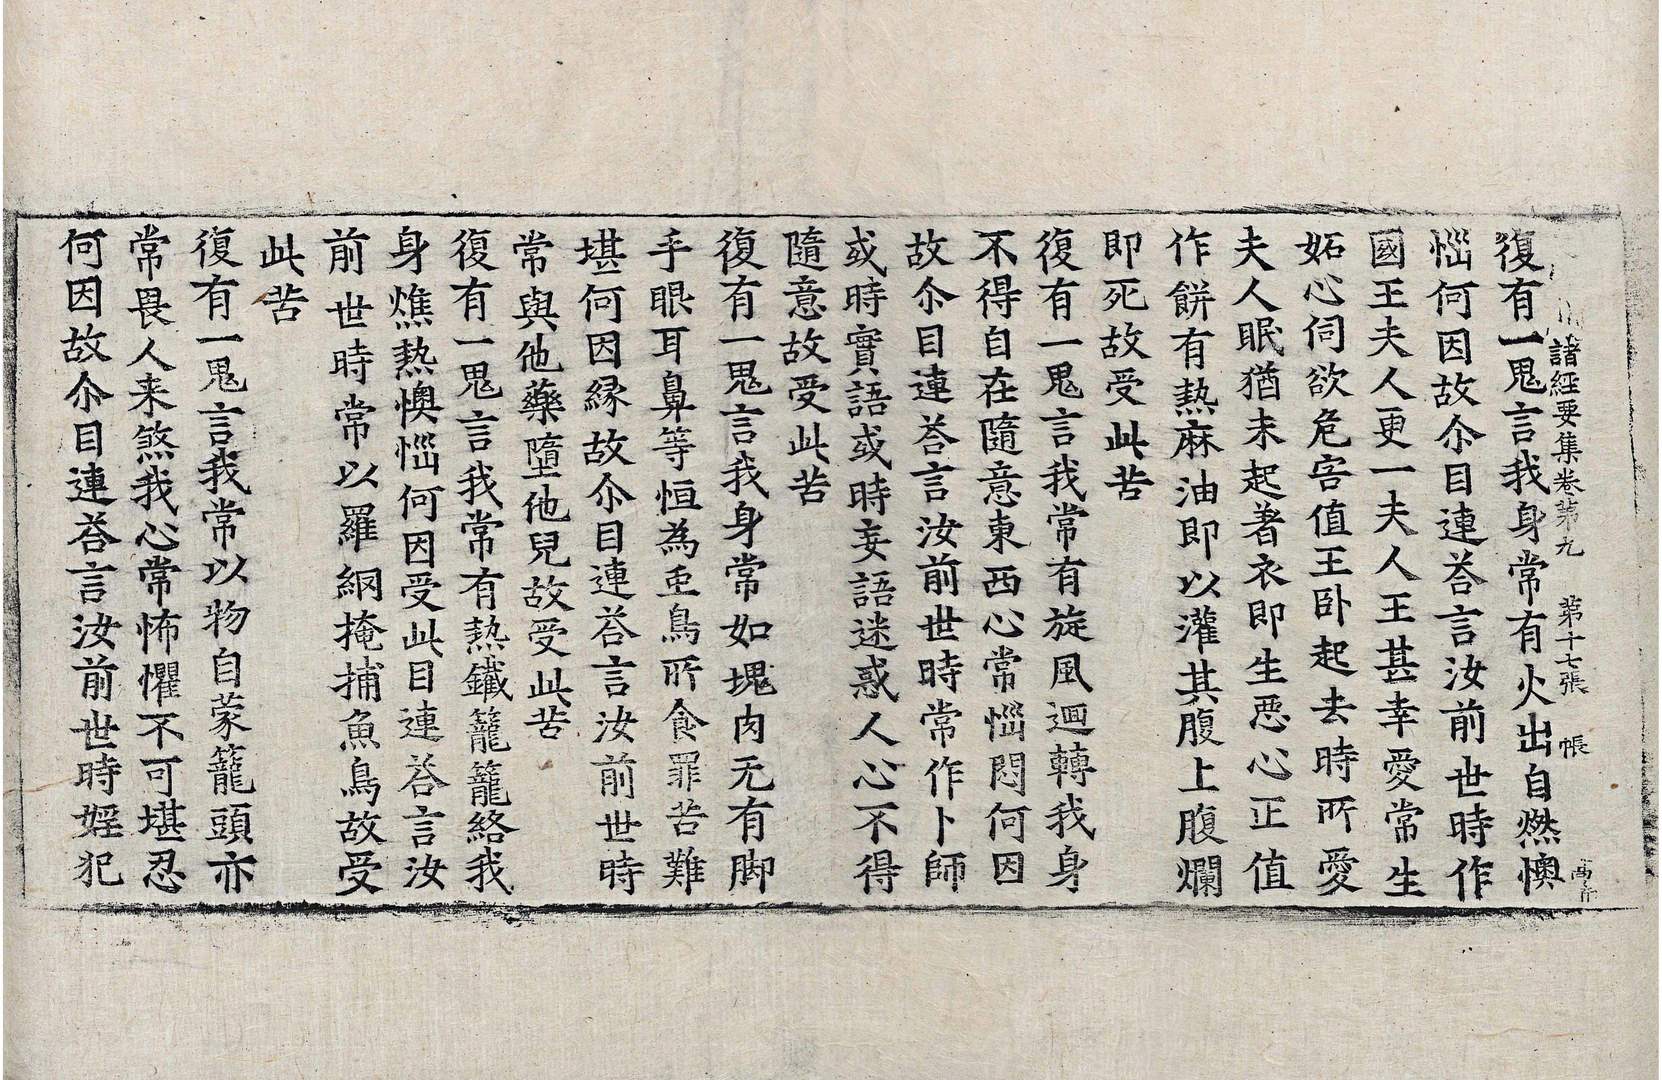 諸經要集卷第九 第十七張 帳
復有一鬼言我身常有火出自燃懊
惱何因故尒目連荅言汝前世時作
國王夫人更一夫人王甚幸愛常生
妬心伺欲危害值王卧起去時所愛
夫人眠猶未起著衣即生惡心正值
作餅有熱麻油即以灌其腹上腹爛
即死故受此苦
復有一鬼言我常有旋風迴轉我身
不得自在隨意東西心常惱悶何因
故尒目連荅言汝前世時常作卜師
或時實語或時妄語迷惑人心不得
隨意故受此苦
復有一鬼言我身常如塊肉无有脚
手眼耳鼻等恒為䖝鳥所食罪苦難
堪何因縁故尒目連荅言汝前世時
常與他藥墮他兒故受此苦
復有一鬼言我常有熱鐵籠籠絡我
身燋熱懊惱何因受此目連荅言汝
前世時常以羅網掩捕魚鳥故受
此苦
復有一鬼言我常以物自蒙籠頭亦
常畏人来煞我心常怖懼不可堪忍
何因故尒目連荅言汝前世時婬犯